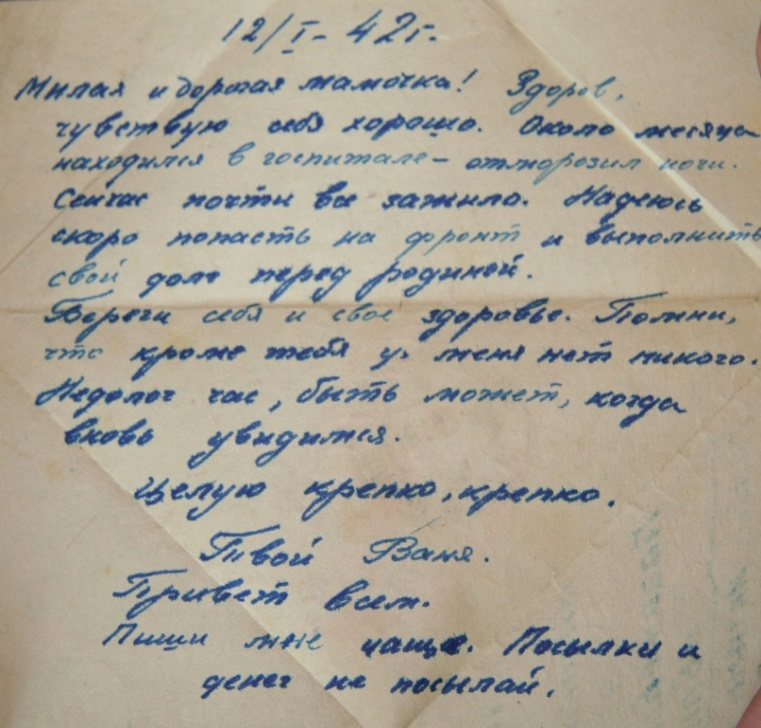 12/I- 42г.
Милая и дорогая мамочка! Здоров,
чувствую себя хорошо. Около месяца
находился в госпитале - отморозил ноги.
Сейчас почти все зажило. Надеюсь
скоро попасть на фронт и выполнить
свой долг перед родиной.
Береги себя и свое здоровье. Помни,
что кроме тебя у меня нет никого.
Недолог час, быть может, когда
вновь увидимся.
Целую крепко, крепко.
Твой Ваня.
Привет всем.
Пиши мне чаще. Посылки и
денег не посылай.